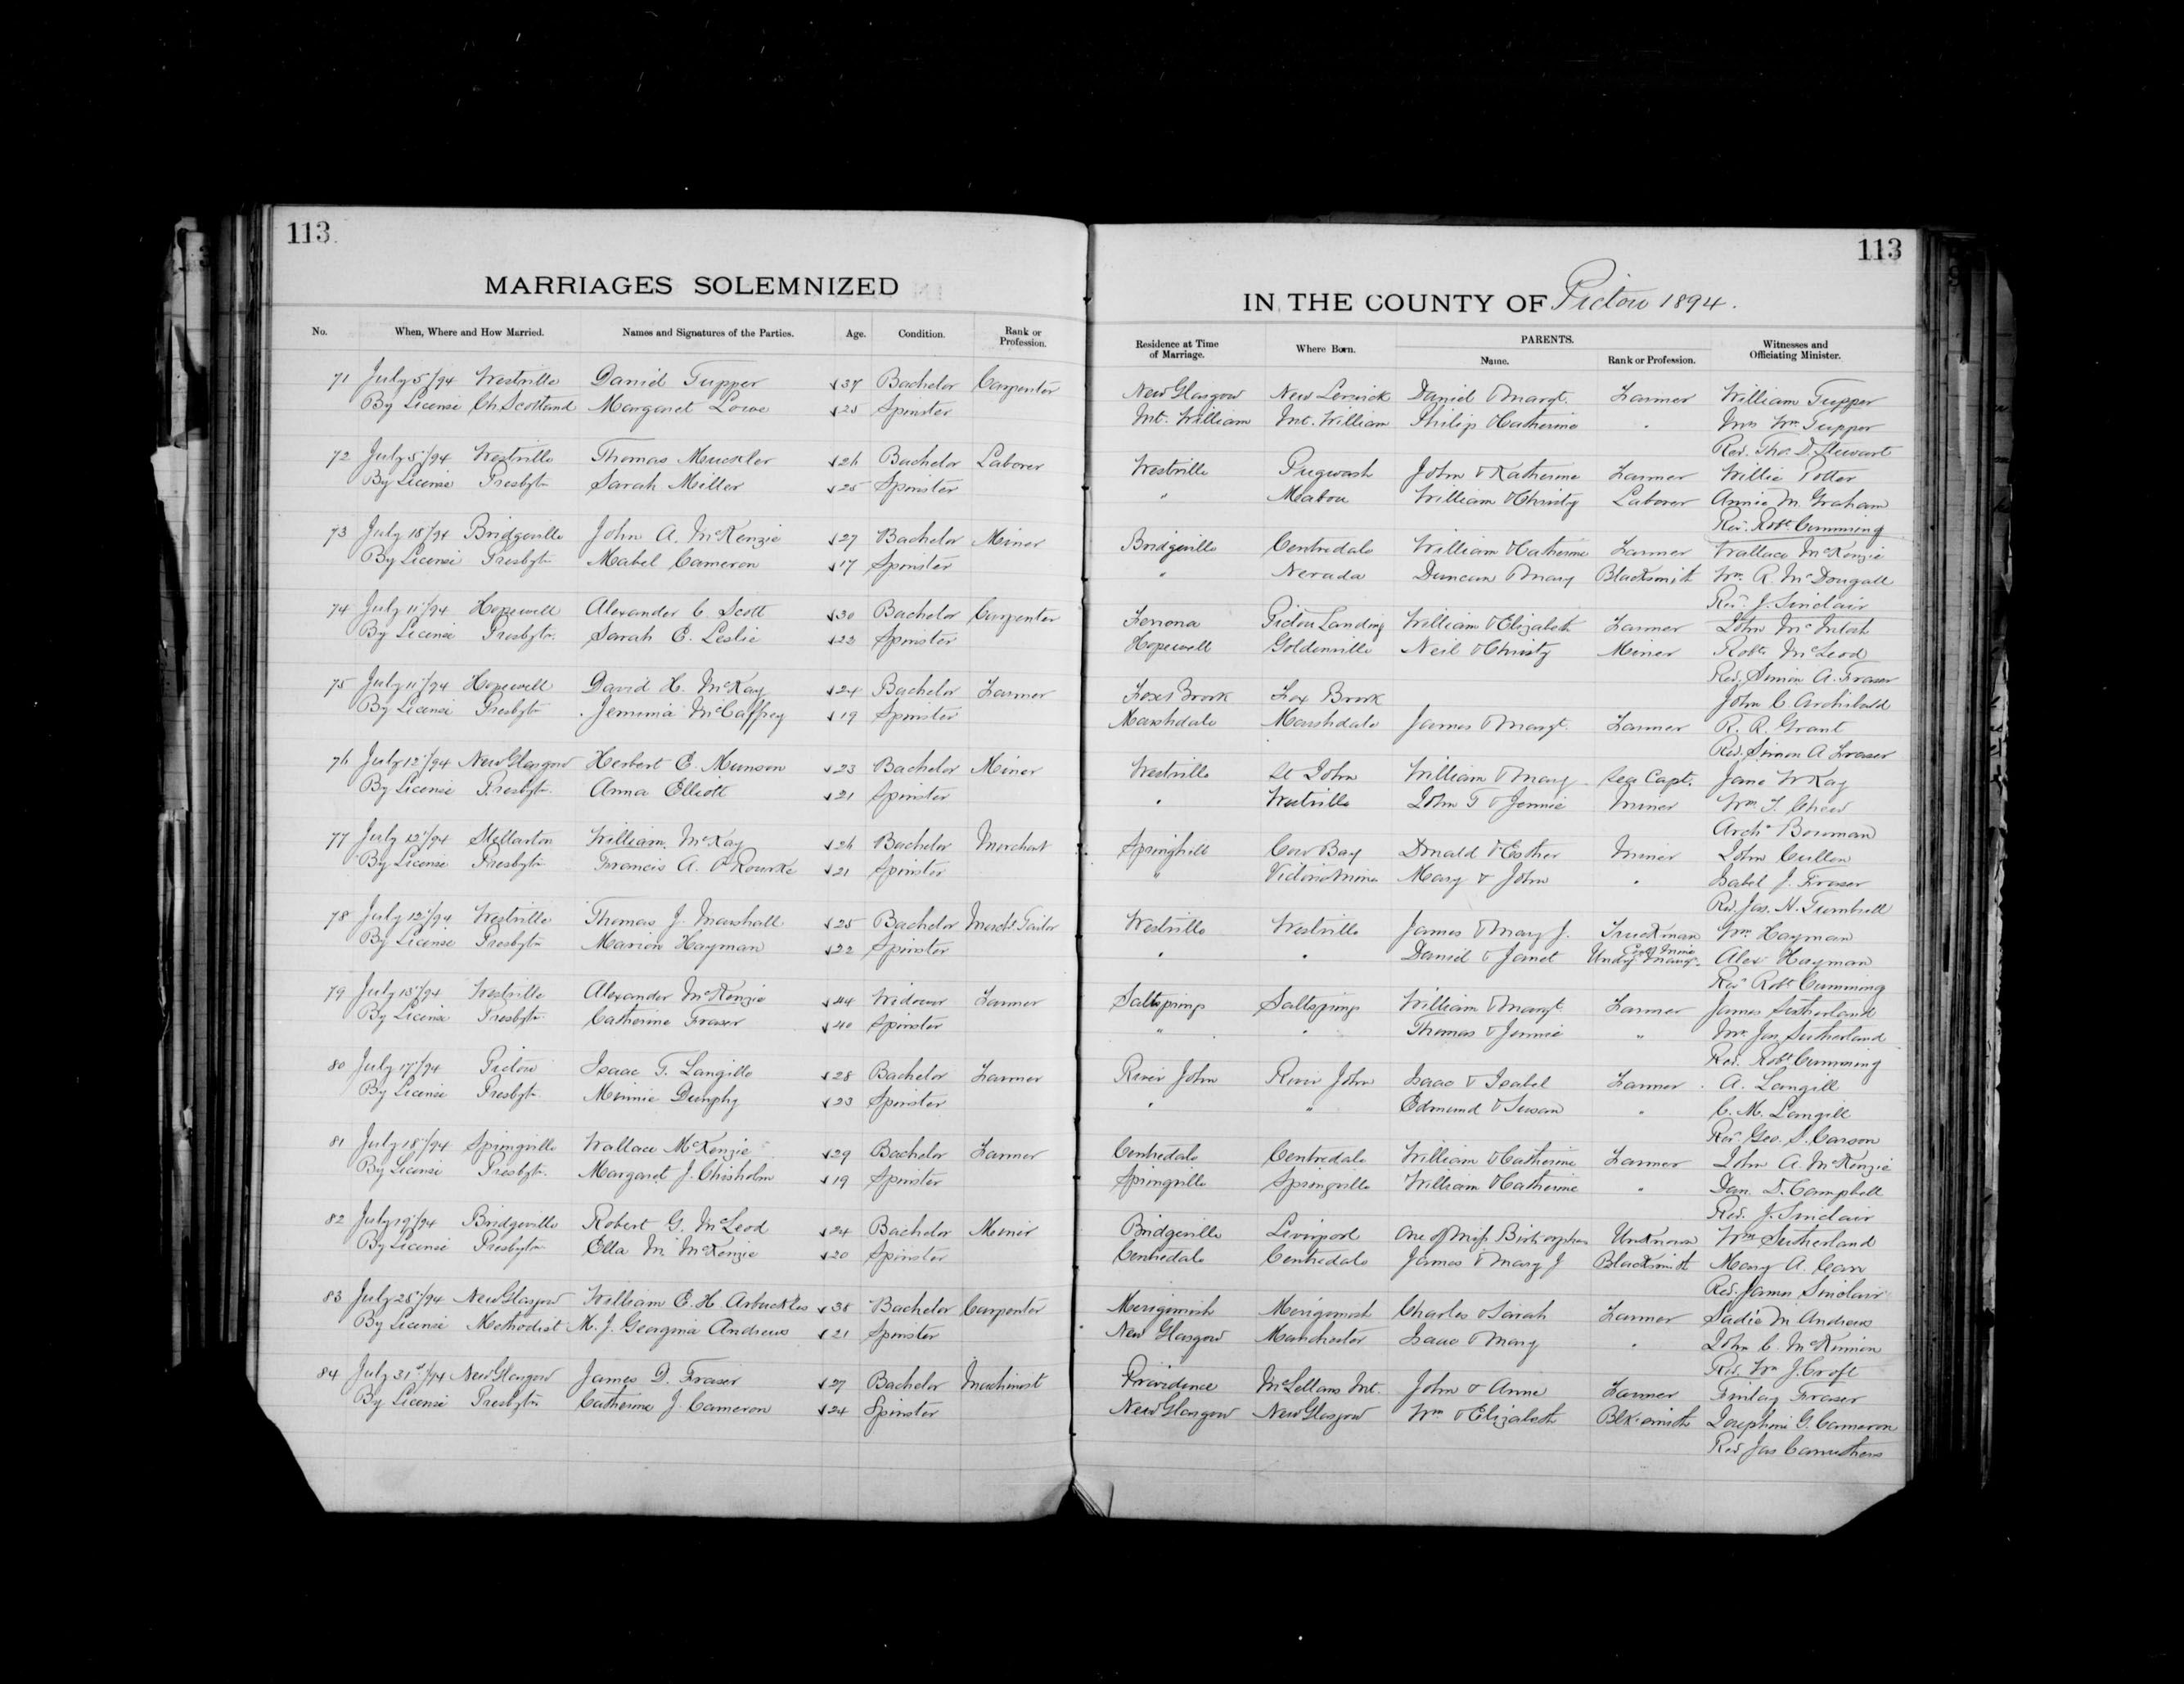 113.
113
MARRIAGES SOLEMNIZED
IN THE COUNTY OF Pictou 1894.
No. When, Where and How Married. Names and Signatures of the Parties. Age. Condition. Rank or Profession. Residence at Time of Marriage. Where Born. PARENTS. Name. Rank or Profession. Witnesses and Officiating Minister.
71 July 5/94 Westville Daniel Tupper 37 Bachelor Carpenter New Glasgow New Lerwick Daniel & Margt. Farmer William Tupper
By License Ch Scotland Margaret Lowe 25 Spinster Mt. William Mt. William Philip & Catherine " Mrs Wm Tupper
Rev. Tho. D. Stewart
72 July 5/94 Westville Thomas Muckler 26 Bachelor Laborer Westville Pugwash John & Katherine Farmer Willie Potter
By License Presbytn Sarah Miller 25 Spinster " Mabou William & Christy Laborer Annie M. Graham
Rev. Robt. Cumming
73 July 18/94 Bridgeville John A. McKenzie 27 Bachelor Miner Bridgeville Centredale William & Catherine Farmer Wallace McKenzie
By License Presbytn Mabel Cameron 17 Spinster " Nevada Duncan & Mary Blacksmith Wm. R. McDougall
Rev. J. Sinclair
74 July 11/94 Hopewell Alexander C. Scott 30 Bachelor Carpenter Ferrona Pictou Landing William & Elizabeth Farmer John McIntosh
By License Presbytn. Sarah E. Leslie 23 Spinster Hopewell Goldenville Neil & Christy Miner Robt. McLeod
Rev. Simon A. Fraser
75 July 11/94 Hopewell David H. McKay 24 Bachelor Farmer Foxes Brook Fox Brook John C. Archibald
By License Presbytn Jemima McCaffrey 19 Spinster Marshdale Marshdale James & Margt. Farmer R. R. Grant
Rev. Simon A Fraser
76 July 12/94 New Glasgow Herbert E. Munson 23 Bachelor Miner Westville St John William & Mary Sea Capt. Jane W Kay
By License Presbytn. Anna Elliott 21 Spinster " Westville John T & Jennie Miner Wm. T. Chew
Archd Bowman
77 July 12/94 Stellarton William McKay 26 Bachelor Merchant Springhill Cow Bay Donald & Esther Miner John Cullen
By License Presbytn Francis A. O'Rourke 21 Spinster " Victoria Mines Mary & John " Isabel J. Fraser
Rev. Jas. H. Turnbull
78 July 12/94 Westville Thomas J. Marshall 25 Bachelor Mercht. Tailor Westville Westville James & Mary J. Truckman Wm. Hayman
By License Presbytn Marion Hayman 22 Spinster " " Daniel & Janet Undg. Mangr. Coal Mine Alex Hayman
Rev. Robt Cumming
79 July 13/94 Westville Alexander McKenzie 44 Widower Farmer Saltsprings Saltsprings William & Margt. Farmer James Sutherland
By License Presbytn. Catherine Fraser 40 Spinster " " Thomas & Jennie " Mrs Jas. Sutherland
Rev. Robt Cumming
80 July 17/94 Pictou Isaac T. Langille 28 Bachelor Farmer River John River John Isaac & Isabel Farmer A. Langill
By License Presbytn. Minnie Dunphy 23 Spinster " " Edmund & Susan " C. M. Langill
Rev. Geo. S. Carson
81 July 18/94 Springville Wallace McKenzie 29 Bachelor Farmer Centredale Centredale William & Catherine Farmer John A. McKenzie
By License Presbytn. Margaret J. Chisholm 19 Spinster Springville Springville William & Catherine " Dan. D. Campbell
Rev. J. Sinclair
82 July 19/94 Bridgeville Robert G. McLeod 24 Bachelor Miner Bridgeville Liverpool One of Miss Birt's orphans Unknown Wm Sutherland
By License Presbytn Ella M McKenzie 20 Spinster Centredale Centredale James & Mary J Blacksmith Mary A. Carr
Rev. James Sinclair
83 July 28/94 New Glasgow William E. H. Arbuckles 38 Bachelor Carpenter Merigomish Merigomish Charles & Sarah Farmer Sadie M Andrews
By License Methodist M. J. Georgina Andrews 21 Spinster New Glasgow Manchester Isaac & Mary " John C. McKinnon
Rev. Wm J. Croft
84 July 31st/94 New Glasgow James D. Fraser 27 Bachelor Machinist Providence McLellans Mt. John & Anne Farmer Finlay Fraser
By License Presbytn Catherine J. Cameron 24 Spinster New Glasgow New Glasgow Wm & Elizabeth Blksmith Josephine G. Cameron
Rev Jas Carruthers